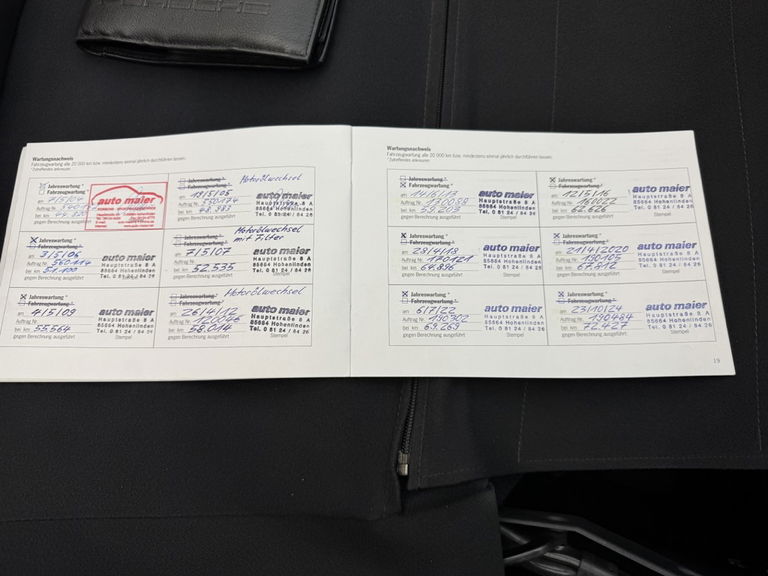 PORSCHE
Wartungsnachweis
Fahrzeugwartung alle 20 000 km bzw. mindestens einmal jährlich durchführen lassen.
Jahreswartung *
Fahrzeugwartung *
am 7/5/04
Auftrag Nr.
bei km
gegen Berechnung ausgeführt
auto maier
Jahreswartung *
Fahrzeugwartung *
am 18/5/05
Auftrag Nr.
bei km 48.883
gegen Berechnung ausgeführt
Motorölwechsel
auto maier
Hauptstraße 8 A
85664 Hohenlinden
Tel. 0 81 24 / 84 26
Jahreswartung *
Fahrzeugwartung *
am 3/5/06
Auftrag Nr.
bei km 51.100
gegen Berechnung ausgeführt
auto maier
Hauptstraße 8 A
85664 Hohenlinden
Tel. 0 81 24 / 84 26
Jahreswartung *
Fahrzeugwartung *
am 7/5/07
Auftrag Nr.
bei km 52.535
gegen Berechnung ausgeführt
Motorölwechsel
mit Filter
auto maier
Hauptstraße 8 A
85664 Hohenlinden
Tel. 0 81 24 / 84 26
Jahreswartung *
Fahrzeugwartung *
am 4/5/09
Auftrag Nr.
bei km 55564
gegen Berechnung ausgeführt
auto maier
Hauptstraße 8 A
85664 Hohenlinden
Tel. 0 81 24 / 84 26
Stempel
Jahreswartung *
Fahrzeugwartung *
am 26/4/12
Auftrag Nr.
bei km 58.014
gegen Berechnung ausgeführt
Motorölwechsel
auto maier
Hauptstraße 8 A
85664 Hohenlinden
Tel. 0 81 24 / 84 26
Stempel
Wartungsnachweis
Fahrzeugwartung alle 20 000 km bzw. mindestens einmal jährlich durchführen lassen.
Jahreswartung *
Fahrzeugwartung *
am 14/6/13
Auftrag Nr. 130058
bei km 59.203
gegen Berechnung ausgeführt
auto maier
Hauptstraße 8 A
85664 Hohenlinden
Tel. 0 81 24 / 84 26
Jahreswartung *
Fahrzeugwartung *
am 12/5/16
Auftrag Nr. 160022
bei km 62.626
gegen Berechnung ausgeführt
auto maier
Hauptstraße 8 A
85664 Hohenlinden
Tel. 0 81 24 / 84 26
Stempel
Jahreswartung *
Fahrzeugwartung *
Auftrag Nr.
bei km 64.896
gegen Berechnung ausgeführt
auto maier
Hauptstraße 8 A
85664 Hohenlinden
Tel. 0 81 24 / 84 26
Jahreswartung *
Fahrzeugwartung *
am 21/4/2020
Auftrag Nr. 190105
bei km 67.812
gegen Berechnung ausgeführt
auto maier
Hauptstraße 8 A
85664 Hohenlinden
Tel. 0 81 24 / 84 26
Jahreswartung *
Fahrzeugwartung *
am 6/7/22
Auftrag Nr. 190302
bei km 69.269
gegen Berechnung ausgeführt
auto maier
Hauptstraße 8 A
85664 Hohenlinden
Tel. 0 81 24 / 84 26
Stempel
Jahreswartung *
Fahrzeugwartung *
am 23/10/24
Auftrag Nr. 190484
bei km 72.427
gegen Berechnung ausgeführt
auto maier
Hauptstraße 8 A
85664 Hohenlinden
Tel. 0 81 24 / 84 26
Stempel
19